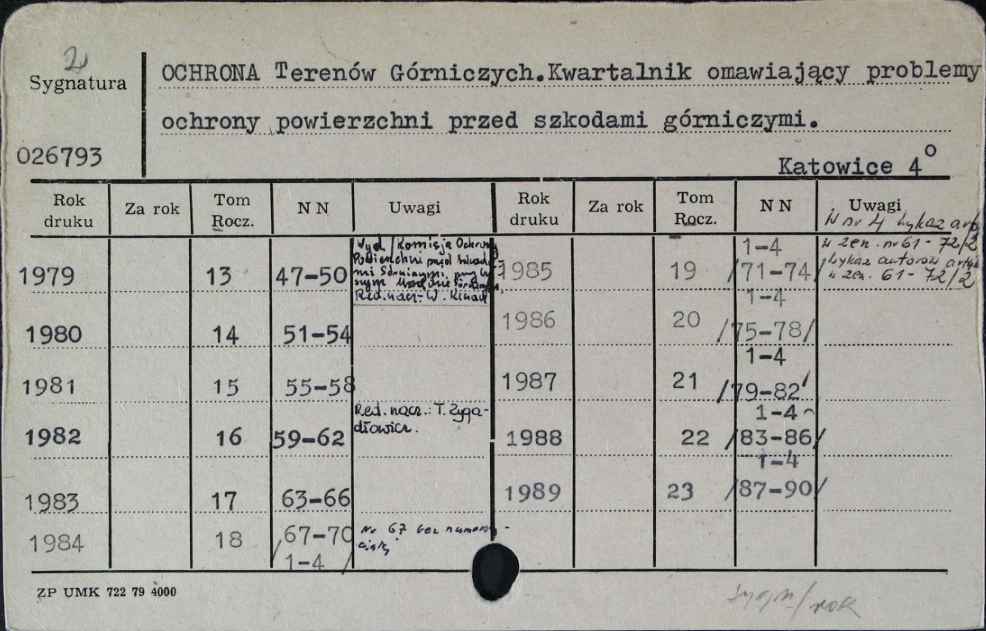 2
Sygnatura
OCHRONA Terenów Górniczych.Kwartalnik omawiający problemy
ochrony powierzchni przed szkodami górniczymi.
026793
Katowice 4°
Rok druku Za rok Tom Rocz. N N Uwagi Rok druku Za rok Tom Rocz. N N Uwagi
W nr 4 wykaz
w zesz. nr 61-72/2
wykaz autorów
w zesz. 61-72/2
1979 13 47-50
Wyd. Komisja Ochrony
Powierzchni przed Szkoda-
mi Górniczymi, przy
Red. nacz. W.
1980 14 51-54
1981 15 55-58
1982 16 59-62
Red. nacz.: T. Zyga-
dłowicz.
1983 17 63-66
1984 18 /67-70
1-4/
nr 67 bez
1-4
1985 19 /71-74/
1-4
1986 20 /75-78/
1-4
1987 21 /79-82/
1-4
1988 22 /83-86/
1-4
1989 23 /87-90/
ZP UMK 722 79 4000
sygn/rok